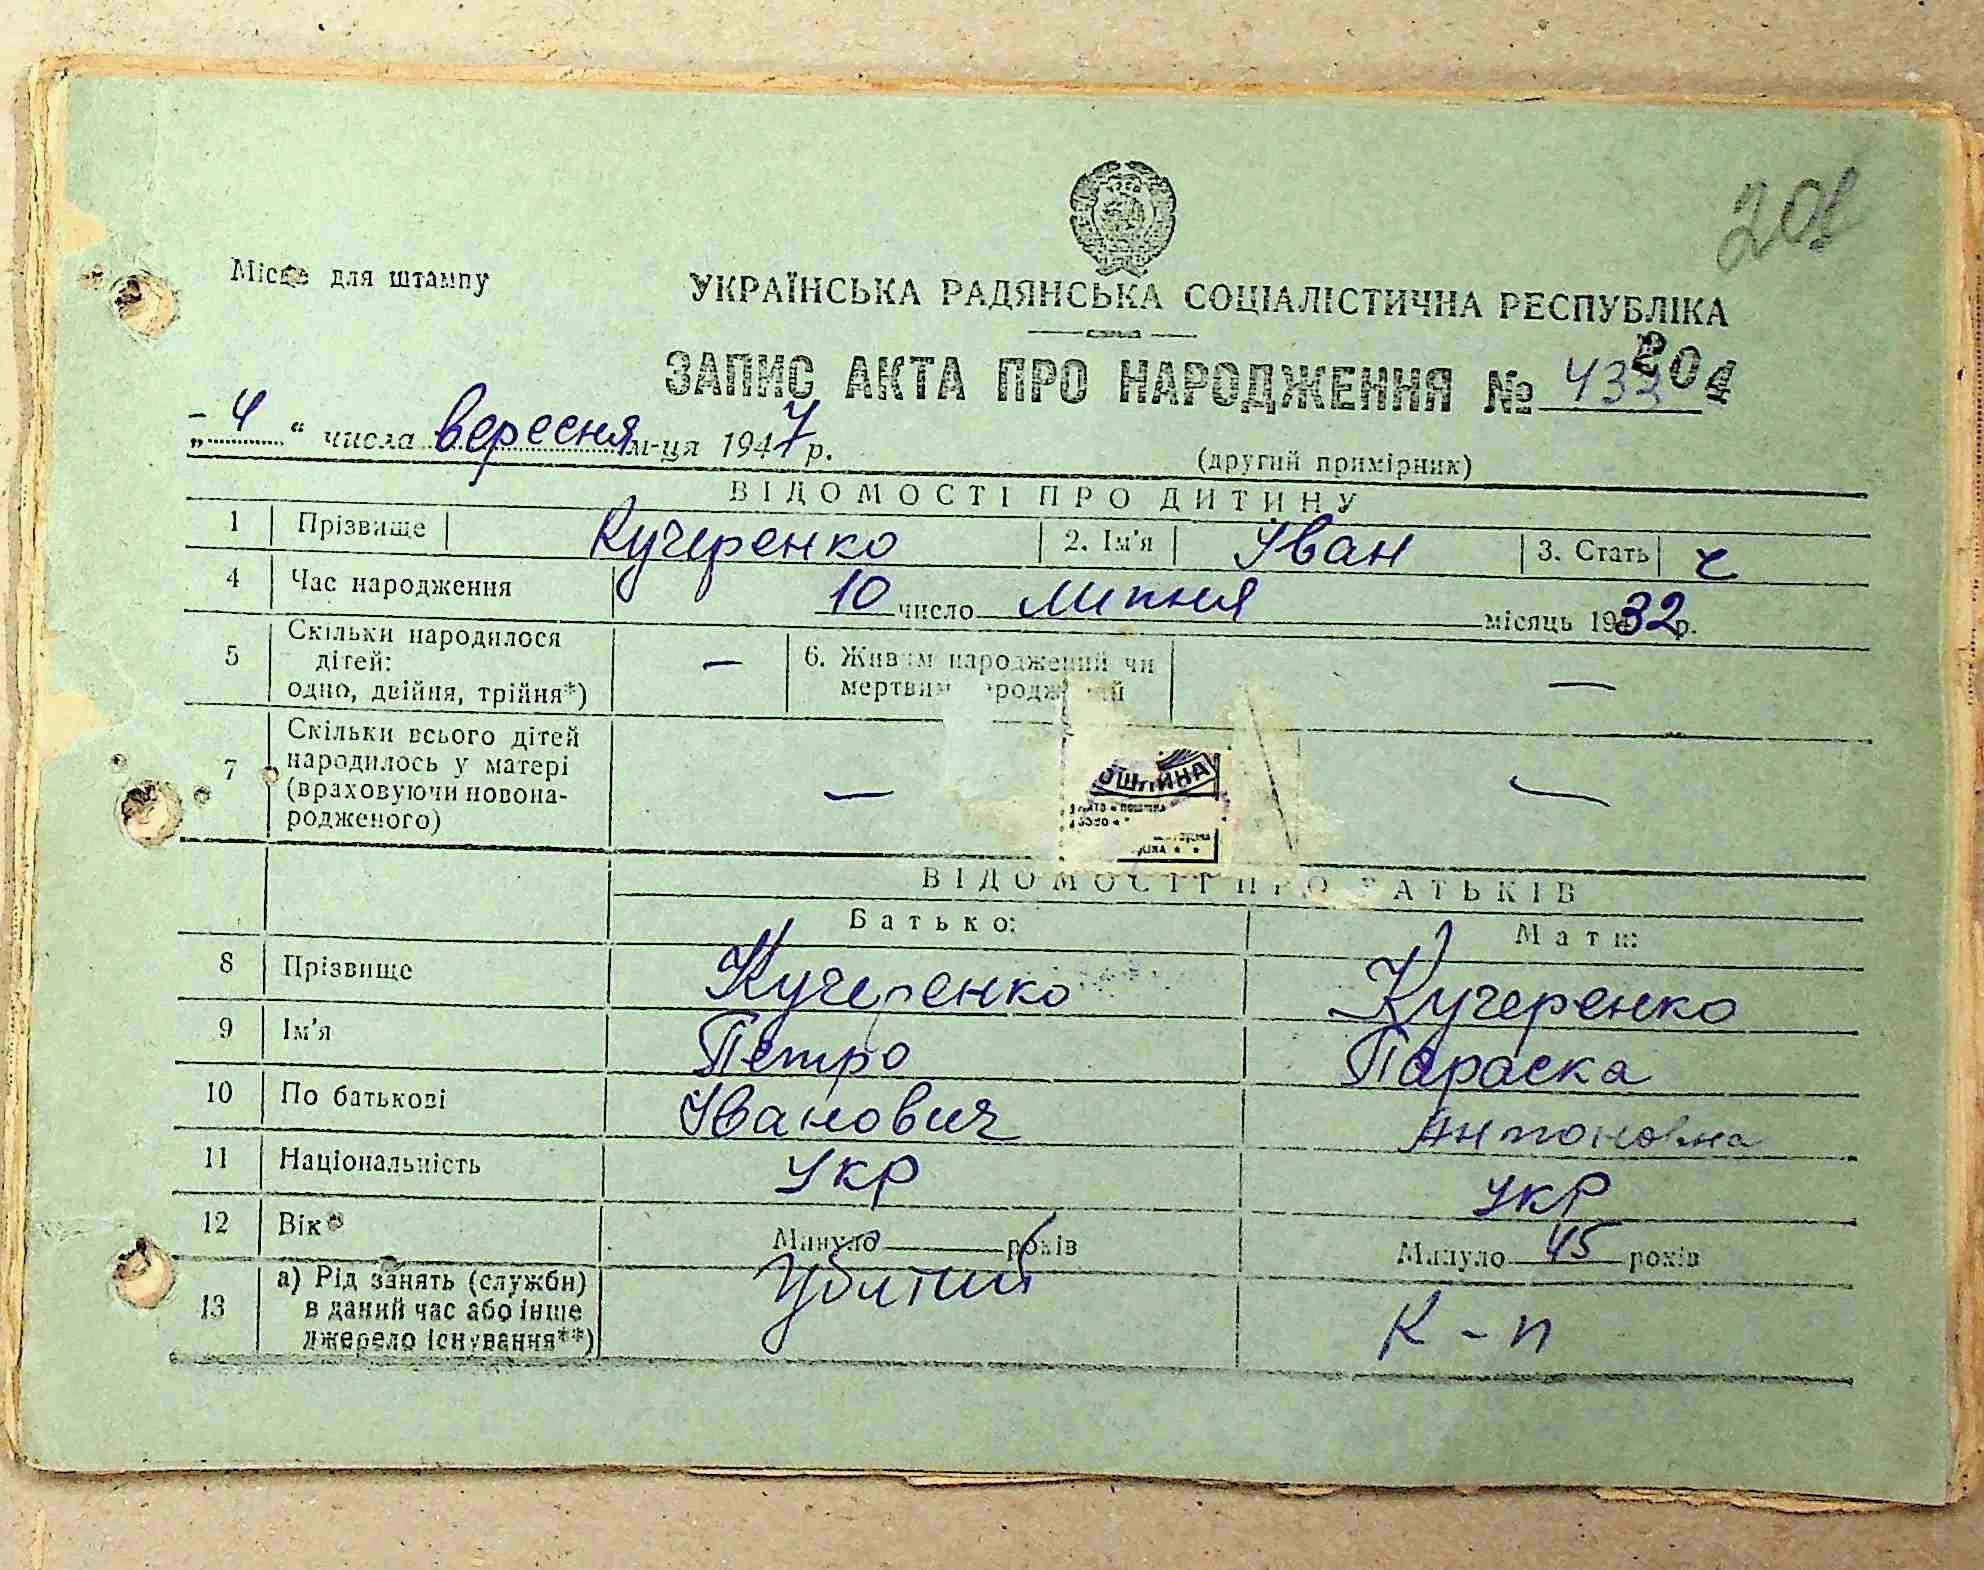 Місце для штампу
УКРАЇНСЬКА РАДЯНСЬКА СОЦІАЛІСТИЧНА РЕСПУБЛІКА
ЗАПИС АКТА ПРО НАРОДЖЕННЯ №
204
„ 4 “ числа вересня м-ця 1947 р.
(другий примірник)
ВІДОМОСТІ ПРО ДИТИНУ
1 Прізвище Кучеренко 2. Ім'я Іван 3. Стать ч
4 Час народження 10 число липня місяць 1932 р.
5 Скільки народилося дітей: одно, двійня, трійня*) — 6. Живим народжений чи мертвим народжений —
7 Скільки всього дітей народилось у матері (враховуючи новонародженого) — —
ОШЛИНА
ВІДОМОСТІ ПРО БАТЬКІВ
Батько: Мати:
8 Прізвище Кучеренко Кучеренко
9 Ім'я Петро Параска
10 По батькові Іванович Антоновна
11 Національність Укр Укр
12 Вік* Минуло років Минуло 45 років
13 а) Рід занять (служби) в даний час або інше джерело існування**) Убитий К-п